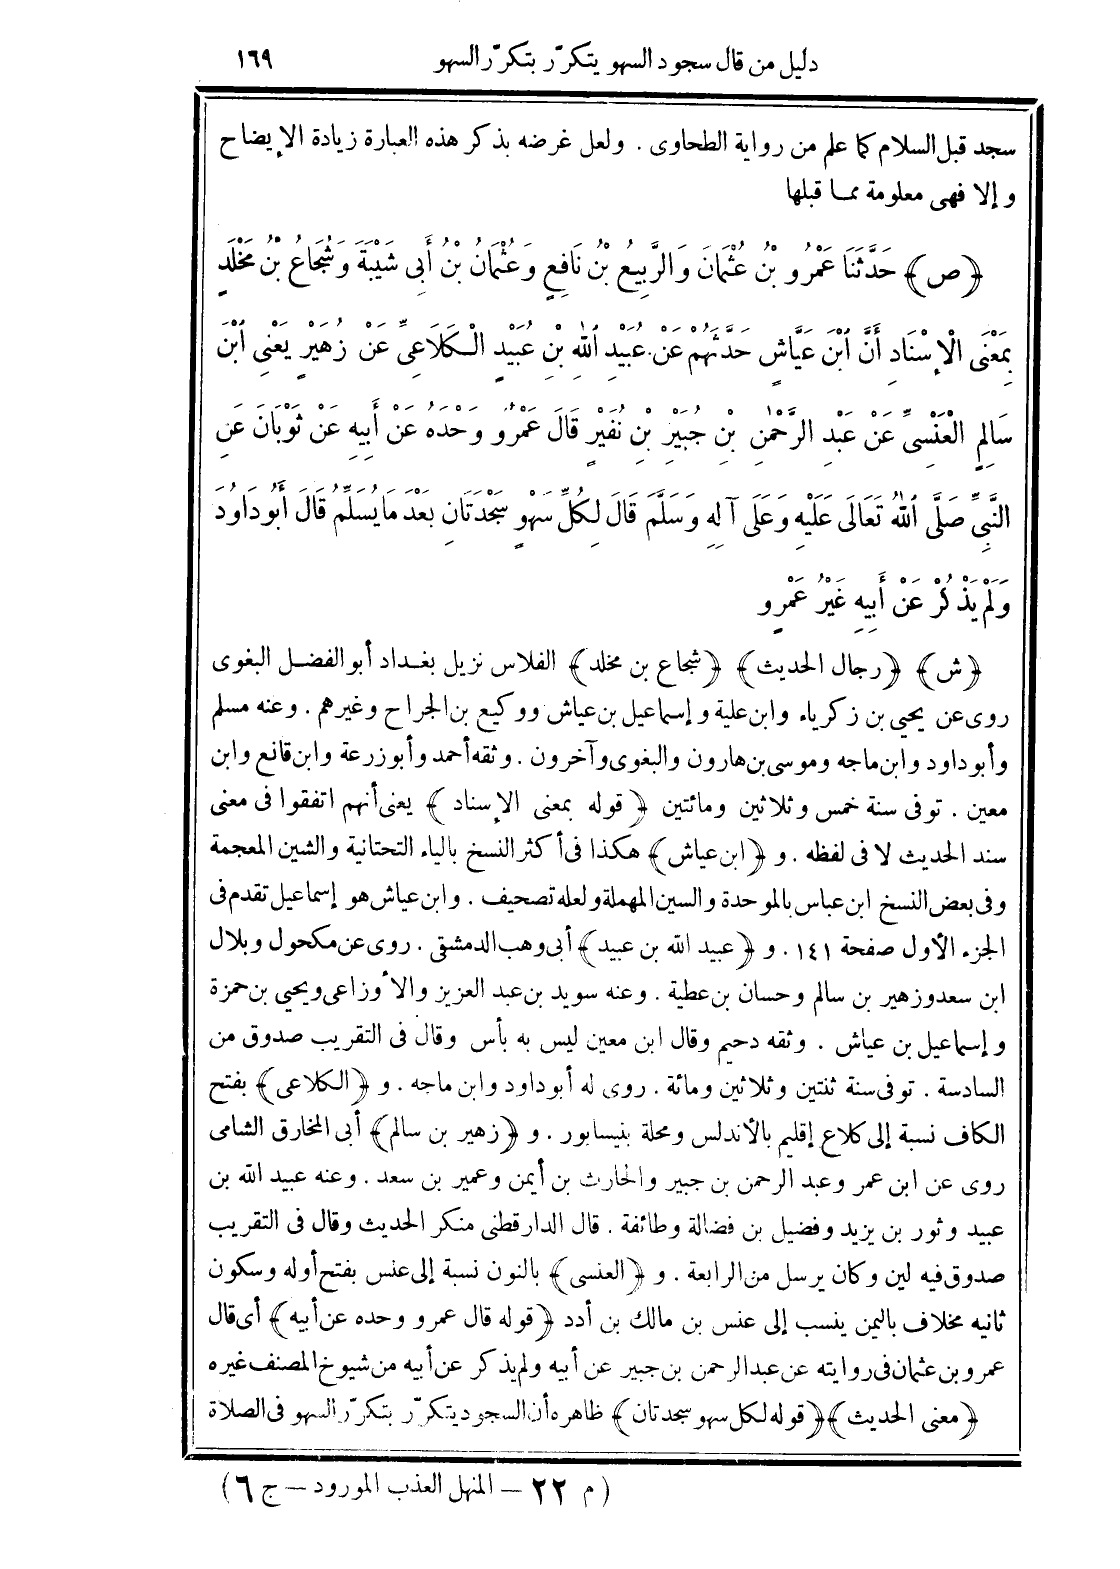 دليل من قال سجود السهو يتكرّر بتكرّر السهو ١٦٩
سجد قبل السلام كما علم من رواية الطحاوى . ولعل غرضه بذكر هذه العبارة زيادة الإيضاح
وإلا فهى معلومة مما قبلها
﴿ص﴾ حَدَّثَنَا عَمْرُو بْنُ عُثْمَانَ وَالرَّبِيعُ بْنُ نَافِعٍ وَعُثْمَانُ بْنُ أَبِى شَيْبَةَ وَشُجَاعُ بْنُ مَخْلَدٍ
بِمَعْنَى الْإِسْنَادِ أَنَّ ٱبْنَ عَيَّاشٍ حَدَّثَهُمْ عَنْ عُبَيْدِ ٱللهِ بْنِ عُبَيْدٍ الْكَلَاعِىِّ عَنْ زُهَيْرٍ يَعْنِى ٱبْنَ
سَالِمٍ الْعَنْسِىِّ عَنْ عَبْدِ الرَّحْمٰنِ بْنِ جُبَيْرِ بْنِ نُفَيْرٍ قَالَ عَمْرٌو وَحْدَهُ عَنْ أَبِيهِ عَنْ ثَوْبَانَ عَنِ
النَّبِىِّ صَلَّى ٱللهُ تَعَالَى عَلَيْهِ وَعَلَى آلِهِ وَسَلَّمَ قَالَ لِكُلِّ سَهْوٍ سَجْدَتَانِ بَعْدَ مَا يُسَلِّمُ قَالَ أَبُو دَاوُدَ
وَلَمْ يَذْكُرْ عَنْ أَبِيهِ غَيْرُ عَمْرٍو
﴿ش﴾ ﴿رجال الحديث﴾ ﴿شجاع بن مخلد﴾ الفلاس نزيل بغداد أبو الفضل البغوى
روى عن يحيى بن زكرياء وابن علية وإسماعيل بن عياش ووكيع بن الجراح وغيرهم . وعنه مسلم
وأبو داود وابن ماجه وموسى بن هارون والبغوى وآخرون . وثقه أحمد وأبو زرعة وابن قانع وابن
معين . توفى سنة خمس وثلاثين ومائتين ﴿قوله بمعنى الإسناد﴾ يعنى أنهم اتفقوا فى معنى
سند الحديث لا فى لفظه . و ﴿ابن عياش﴾ هكذا فى أكثر النسخ بالياء التحتانية والشين المعجمة
وفى بعض النسخ ابن عباس بالموحدة والسين المهملة ولعله تصحيف . وابن عياش هو إسماعيل تقدم فى
الجزء الأول صفحة ١٤١ . و ﴿عبيد الله بن عبيد﴾ أبى وهب الدمشقى . روى عن مكحول وبلال
ابن سعد وزهير بن سالم وحسان بن عطية . وعنه سويد بن عبد العزيز والأوزاعى ويحيى بن حمزة
وإسماعيل بن عياش . وثقه دحيم وقال ابن معين ليس به بأس وقال فى التقريب صدوق من
السادسة . توفى سنة ثنتين وثلاثين ومائة . روى له أبو داود وابن ماجه . و ﴿الكلاعى﴾ بفتح
الكاف نسبة إلى كلاع إقليم بالأندلس ومحلة بنيسابور . و ﴿زهير بن سالم﴾ أبى المخارق الشامى
روى عن ابن عمر وعبد الرحمن بن جبير والحارث بن أيمن وعمير بن سعد . وعنه عبيد الله بن
عبيد وثور بن يزيد وفضيل بن فضالة وطائفة . قال الدارقطنى منكر الحديث وقال فى التقريب
صدوق فيه لين وكان يرسل من الرابعة . و ﴿العنسى﴾ بالنون نسبة إلى عنس بفتح أوله وسكون
ثانيه مخلاف باليمن ينسب إلى عنس بن مالك بن أدد ﴿قوله قال عمرو وحده عن أبيه﴾ أى قال
عمرو بن عثمان فى روايته عن عبد الرحمن بن جبير عن أبيه ولم يذكر عن أبيه من شيوخ المصنف غيره
﴿معنى الحديث﴾ ﴿قوله لكل سهو سجدتان﴾ ظاهره أن السجود يتكرّر بتكرّر السهو فى الصلاة
(م ٢٢ – المنهل العذب المورود – ج ٦)